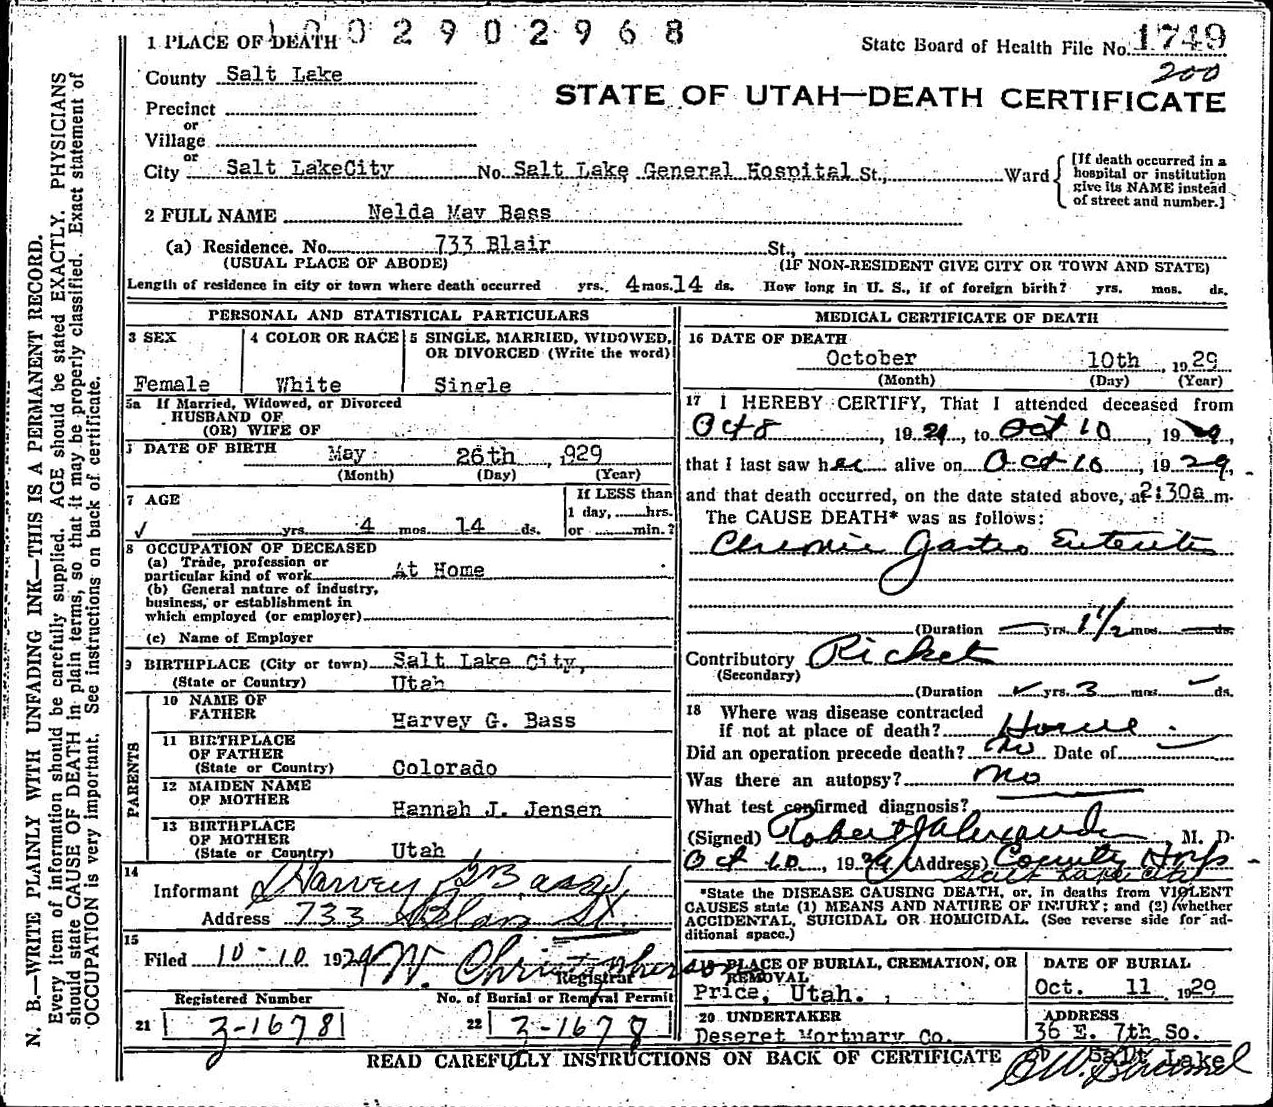 1002902968
1 PLACE OF DEATH
State Board of Health File No. 1749
200
County Salt Lake
STATE OF UTAH—DEATH CERTIFICATE
Precinct
or
Village
or
City Salt LakeCity No. Salt Lake General Hospital St., Ward
[If death occurred in a
hospital or institution
give its NAME instead
of street and number.]
2 FULL NAME Nelda May Bass
(a) Residence. No. 733 Blair St.,
(USUAL PLACE OF ABODE) (IF NON-RESIDENT GIVE CITY OR TOWN AND STATE)
Length of residence in city or town where death occurred yrs. 4 mos. 14 ds. How long in U. S., if of foreign birth? yrs. mos. ds.
PERSONAL AND STATISTICAL PARTICULARS
3 SEX 4 COLOR OR RACE 5 SINGLE, MARRIED, WIDOWED,
OR DIVORCED (Write the word)
Female White Single
5a If Married, Widowed, or Divorced
HUSBAND OF
(OR) WIFE OF
DATE OF BIRTH May 26th, 929
(Month) (Day) (Year)
7 AGE
If LESS than
1 day, hrs.
yrs. 4 mos. 14 ds. or min.?
8 OCCUPATION OF DECEASED
(a) Trade, profession or
particular kind of work At Home
(b) General nature of industry,
business, or establishment in
which employed (or employer)
(c) Name of Employer
9 BIRTHPLACE (City or town) Salt Lake City,
(State or Country) Utah
PARENTS
10 NAME OF
FATHER Harvey G. Bass
11 BIRTHPLACE
OF FATHER
(State or Country) Colorado
12 MAIDEN NAME
OF MOTHER Hannah J. Jensen
13 BIRTHPLACE
OF MOTHER
(State or Country) Utah
14
Informant Harvey G Bass
Address 733 Blair St
15
Filed 10-10 1929 W. Christopherson
Registrar
Registered Number No. of Burial or Removal Permit
21 3-1678 22 3-1678
MEDICAL CERTIFICATE OF DEATH
16 DATE OF DEATH
October 10th, 1929
(Month) (Day) (Year)
17 I HEREBY CERTIFY, That I attended deceased from
Oct 8, 1929, to Oct 10, 1929,
that I last saw her alive on Oct 10, 1929,
and that death occurred, on the date stated above, at 2:30a m.
The CAUSE DEATH* was as follows:
Chronic Gastro Enteritis
(Duration yrs. 1 1/2 mos. ds.
Contributory Ricket
(Secondary)
(Duration yrs. 3 mos. ds.
18 Where was disease contracted
if not at place of death? Home
Did an operation precede death? No Date of
Was there an autopsy? no
What test confirmed diagnosis?
(Signed) Robert J Alexander M. D.
Oct 10, 1929 (Address) County Hosp
Salt Lake City
*State the DISEASE CAUSING DEATH, or, in deaths from VIOLENT
CAUSES state (1) MEANS AND NATURE OF INJURY; and (2) whether
ACCIDENTAL, SUICIDAL OR HOMICIDAL. (See reverse side for ad-
ditional space.)
19 PLACE OF BURIAL, CREMATION, OR
REMOVAL
Price, Utah.
DATE OF BURIAL
Oct. 11 1929
20 UNDERTAKER
Deseret Mortuary Co.
ADDRESS
36 E. 7th So.
Salt Lake
READ CAREFULLY INSTRUCTIONS ON BACK OF CERTIFICATE
N. B.—WRITE PLAINLY WITH UNFADING INK—THIS IS A PERMANENT RECORD.
Every item of information should be carefully supplied. AGE should be stated EXACTLY. PHYSICIANS
should state CAUSE OF DEATH in plain terms, so that it may be properly classified. Exact statement of
OCCUPATION is very important. See instructions on back of certificate.